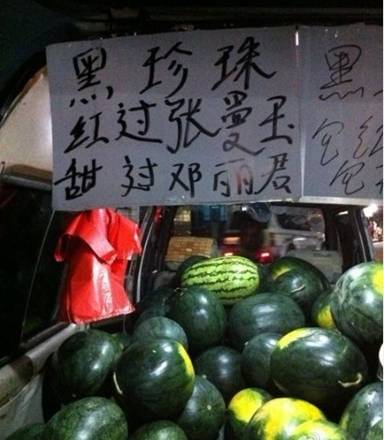 黑珍珠
红过张曼玉
甜过邓丽君
黑
包红
包